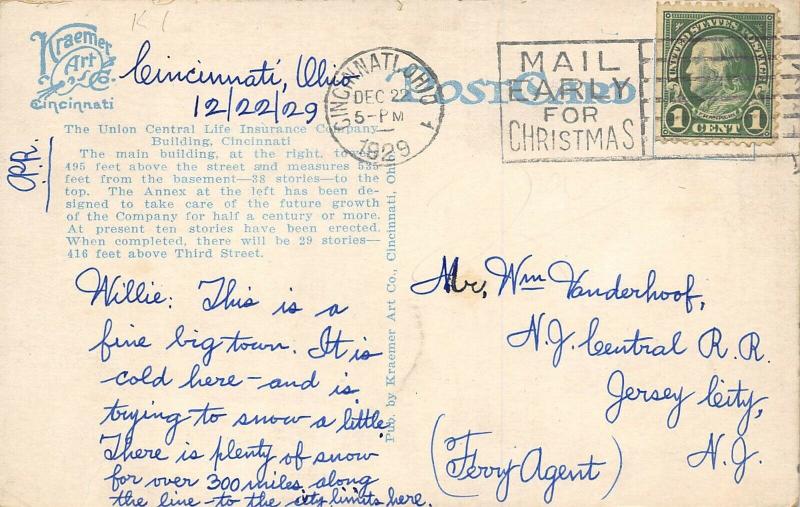 K 1
Kraemer
Art
Co.
Cincinnati
Cincinnati, Ohio
12/22/29
CINCINNATI, OHIO
DEC 22
5-PM
1929
1
POST CARD
MAIL
EARLY
FOR
CHRISTMAS
UNITED STATES POSTAGE
FRANKLIN
1 CENT 1
The Union Central Life Insurance Company
Building, Cincinnati
The main building, at the right, towers
495 feet above the street and measures 535
feet from the basement—38 stories—to the
top. The Annex at the left has been de-
signed to take care of the future growth
of the Company for half a century or more.
At present ten stories have been erected.
When completed, there will be 29 stories—
416 feet above Third Street.
Pub. by Kraemer Art Co., Cincinnati, Ohio
Willie: This is a
fine big town. It is
cold here - and is
trying to snow a little.
There is plenty of snow
for over 300 miles along
the line - to the city limits here.
Mr. Wm Vanderhoof,
N.J. Central R.R.
Jersey City,
N.J.
(Ferry Agent)